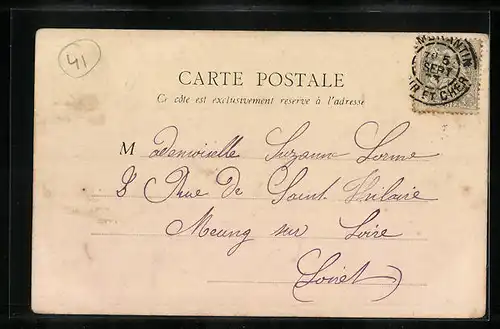 41
ROMORANTIN
7E 5
SEPT
LOIR ET CHER
CARTE POSTALE
Ce côté est exclusivement réservé à l'adresse
Mademoiselle Suzanne Lorme
8 Rue De Saint Hilaire
Meung sur Loire
(Loiret)